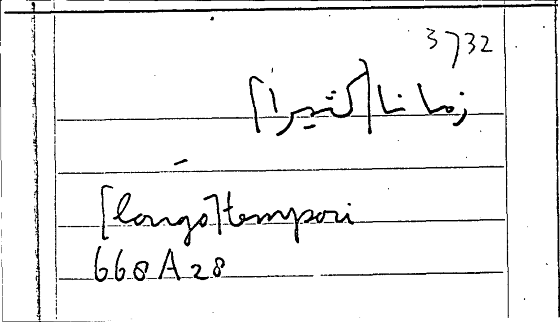 3732
زمانا [كثيرا]
[longo] tempori
668A28